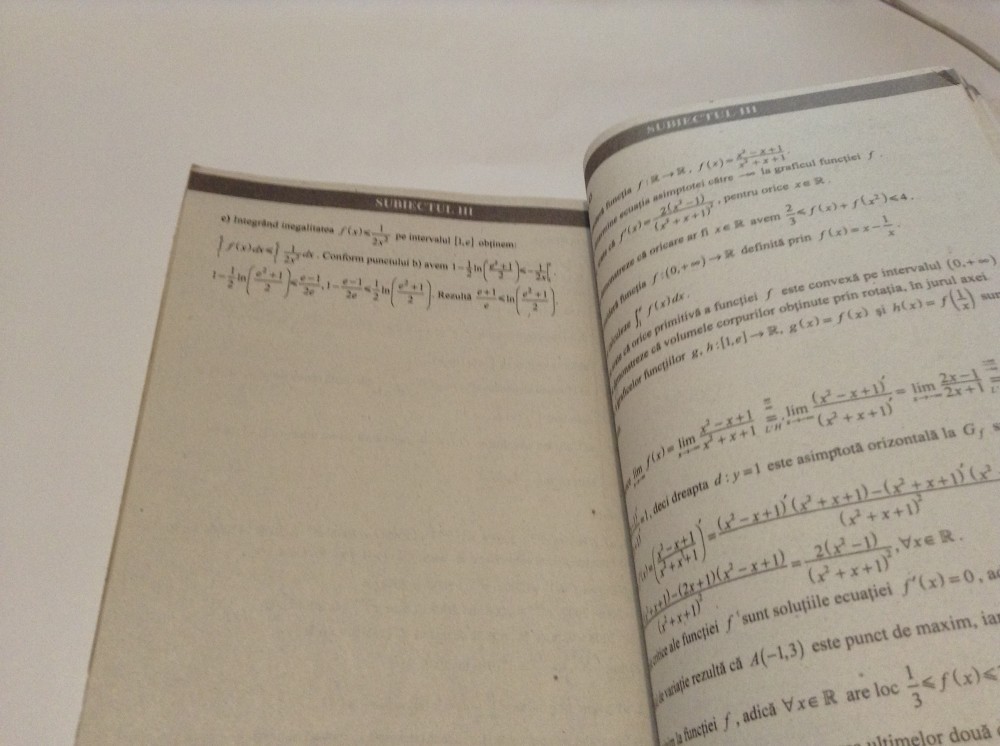 SUBIECTUL III
c) Integrând inegalitatea f(x) ≤ 1/(2x²) pe intervalul [1,e] obținem:
∫ f(x)dx ≤ ∫ 1/(2x²) dx. Conform punctului b) avem 1 − 1/2 ln((e²+1)/2) ≤ −1/(2x)
1 − 1/2 ln((e²+1)/2) ≤ (e−1)/(2e), 1 − (e−1)/(2e) ≤ 1/2 ln((e²+1)/2). Rezultă (e+1)/e ≤ ln((e²+1)/2).
SUBIECTUL III
funcția f : ℝ → ℝ, f(x) = (x²−x+1)/(x²+x+1).
ecuația asimptotei către −∞ la graficul funcției f.
că f'(x) = 2(x²−1)/(x²+x+1)², pentru orice x ∈ ℝ.
că oricare ar fi x ∈ ℝ avem 2/3 ≤ f(x) + f(x²) ≤ 4.
funcția f : (0,+∞) → ℝ definită prin f(x) = x − 1/x.
∫₁ᵉ f(x)dx.
că orice primitivă a funcției f este convexă pe intervalul (0,+∞)
că volumele corpurilor obținute prin rotația, în jurul axei
graficelor funcțiilor g, h : [1,e] → ℝ, g(x) = f(x) și h(x) = f(1/x) sunt
lim f(x) = lim (x²−x+1)/(x²+x+1) = L'H lim (x²−x+1)'/(x²+x+1)' = lim (2x−1)/(2x+1) = L'
=1, deci dreapta d : y = 1 este asimptotă orizontală la G_f
f'(x) = ((x²−x+1)/(x²+x+1))' = ((x²−x+1)'(x²+x+1)−(x²+x+1)'(x²
+x+1)−(2x+1)(x²−x+1)/(x²+x+1)² = 2(x²−1)/(x²+x+1)², ∀x ∈ ℝ.
critice ale funcției f sunt soluțiile ecuației f'(x) = 0,
de variație rezultă că A(−1,3) este punct de maxim, iar
la funcției f, adică ∀x ∈ ℝ are loc 1/3 ≤ f(x) ≤
ultimelor două